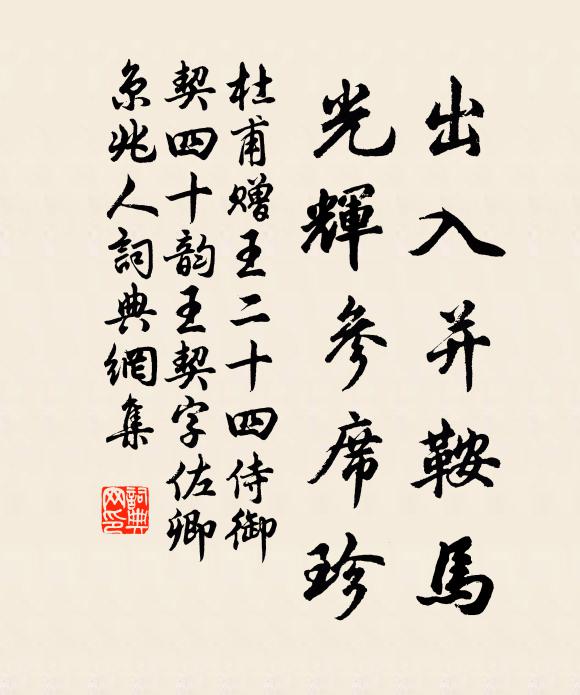 出入并鞍馬
光輝參席珍
杜甫赠王二十四侍御
契四十韵王契字佐卿
京兆人詞典網集
詞典
网印